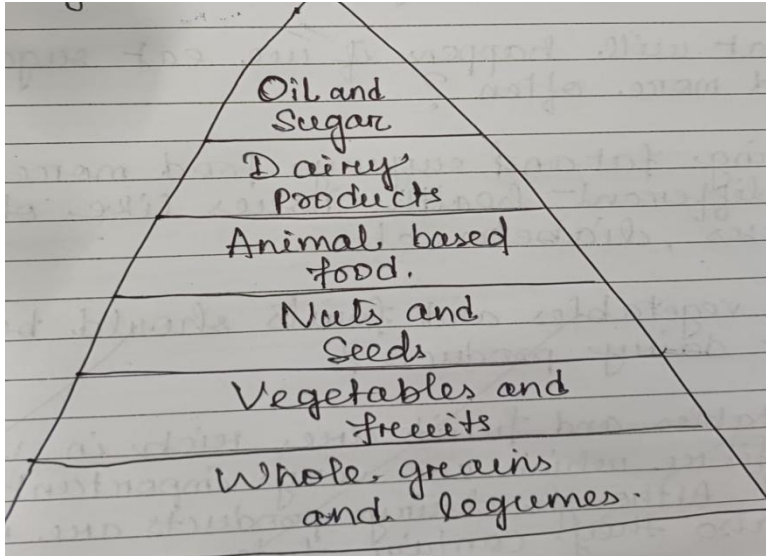 Oil and
Sugar
Dairy
Products
Animal based
food.
Nuts and
Seeds
Vegetables and
fruits
Whole grains
and legumes.